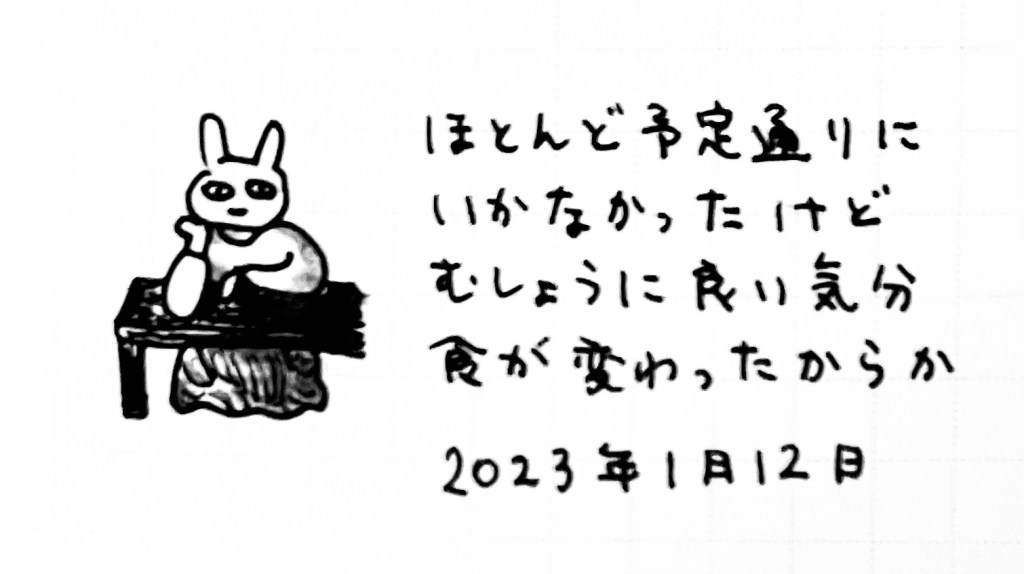 ほとんど予定通りに
いかなかったけど
むしょうに良い気分
食が変わったからか
2023年1月12日